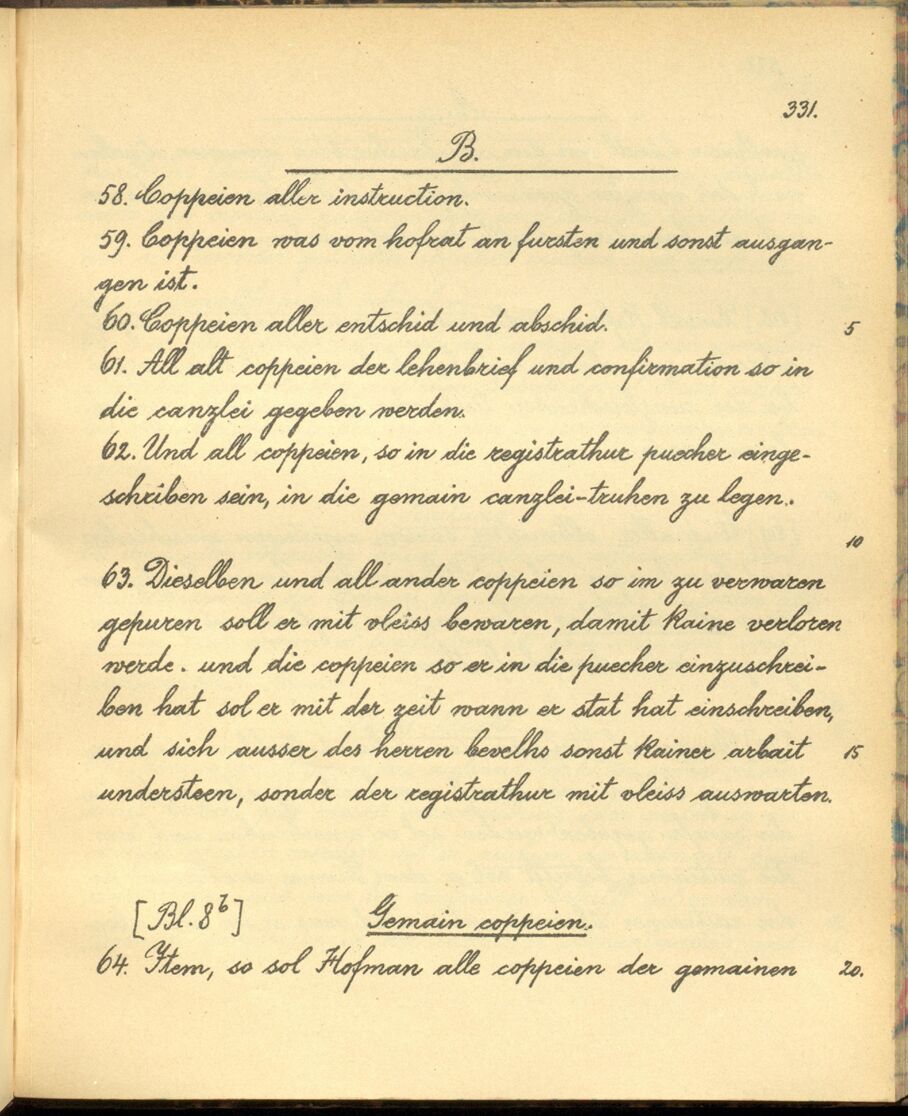 331.
B.
58. Coppeien aller instruction.
59. Coppeien was vom hofrat an fursten und sonst ausgan-
gen ist.
60. Coppeien aller entschid und abschid. 5
61. All alt coppeien der lehenbrief und confirmation so in
die canzlei gegeben werden.
62. Und all coppeien, so in die registrathur puecher einge-
schriben sein, in die gemain canzlei-truhen zu legen.
10
63. Dieselben und all ander coppeien so im zu verwaren
gepuren soll er mit vleiss bewaren, damit kaine verloren
werde. und die coppeien so er in die puecher einzuschrei-
ben hat sol er mit der zeit wann er stat hat einschreiben,
und sich ausser des herren bevelhs sonst kainer arbait 15
understeen, sonder der registrathur mit vleiss auswarten.
[Bl. 8b] Gemain coppeien.
64. Item, so sol Hofman alle coppeien der gemainen 20.